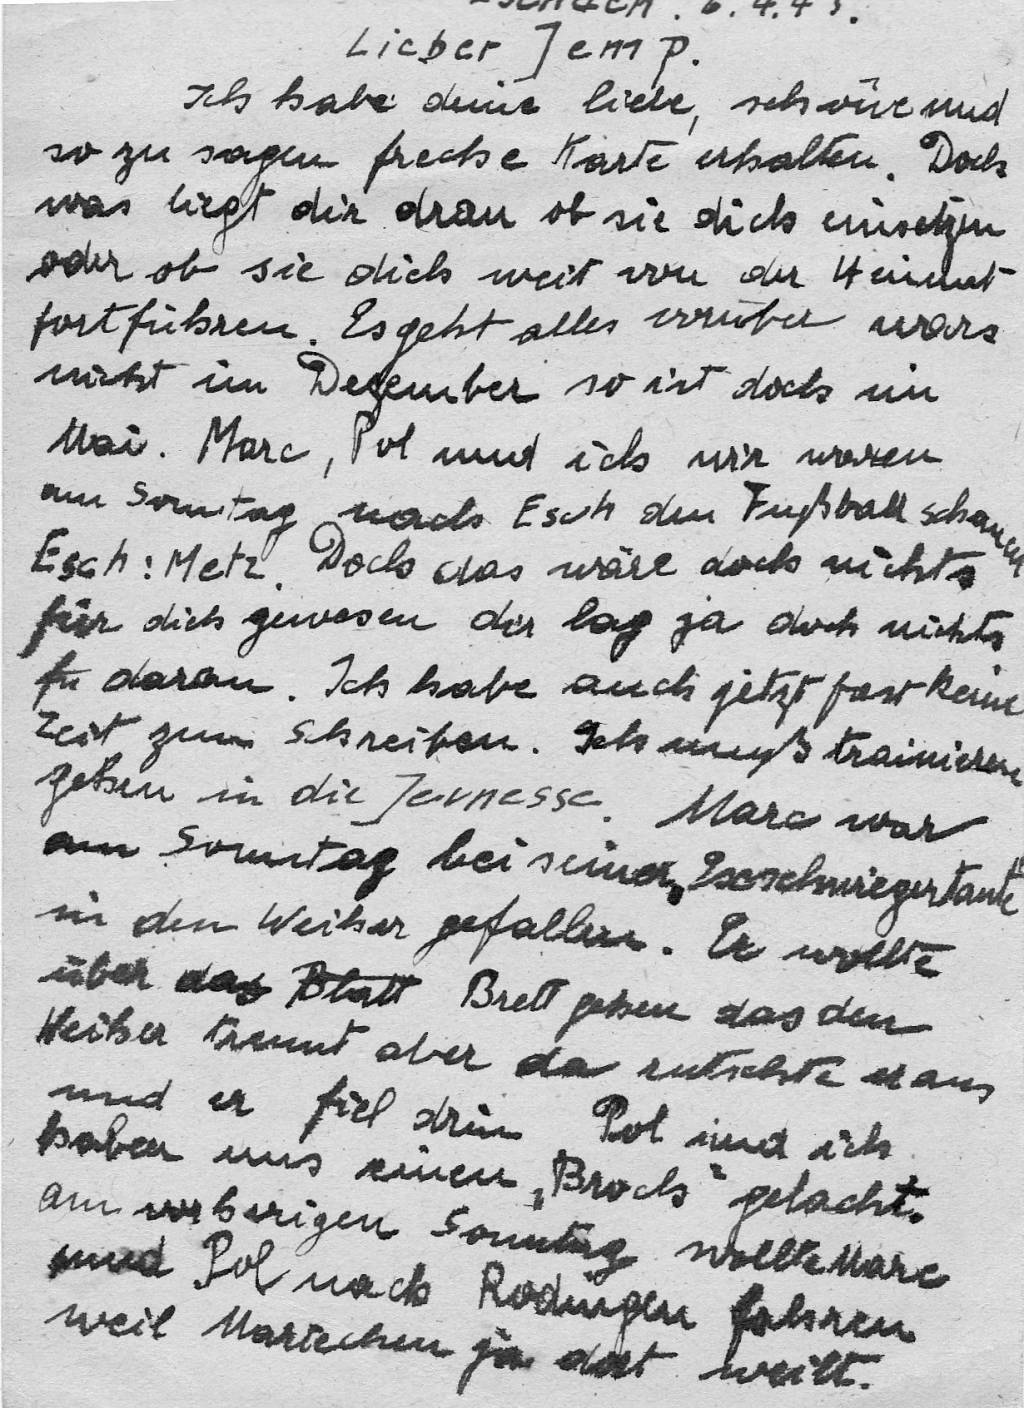 6.4.43.
Lieber Jemp.
Ich habe deine liebe, schöne und
so zu sagen freche Karte erhalten. Doch
was liegt dir dran ob sie dich einsetzen
oder ob sie dich weit von der Heimat
fortführen. Es geht alles vorüber wars
nicht im Dezember so ist doch im
Mai. Marc, Pol und ich wir waren
am Sonntag nach Esch den Fußball schauen
Esch: Metz. Doch das wäre doch nichts
für dich gewesen dir lag ja doch nichts
daran. Ich habe auch jetzt fast keine
Zeit zum Schreiben. Ich muß trainieren
gehen in die Jeunesse. Marc war
am Sonntag bei seiner
in den Weiher gefallen. Er wollte
über das Blatt Brett gehen das den
Weiher trennt aber da rutschte er aus
und er fiel drin Pol und ich
haben uns einen „Broch“ gelacht.
am vorherigen Sonntag wollte Marc
und Pol nach Rodingen fahren
weil Mariechen ja dort weilt.